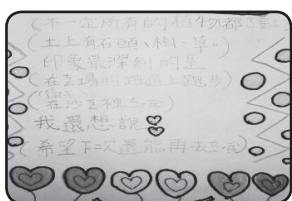 (不一定所有的植物都需土)
(土上有石頭、樹、草。)
印象最深刻的是
(在主場的跑道上跑步)
(在沙主裡玩)
我還想說
(希望下一次還能再去玩)